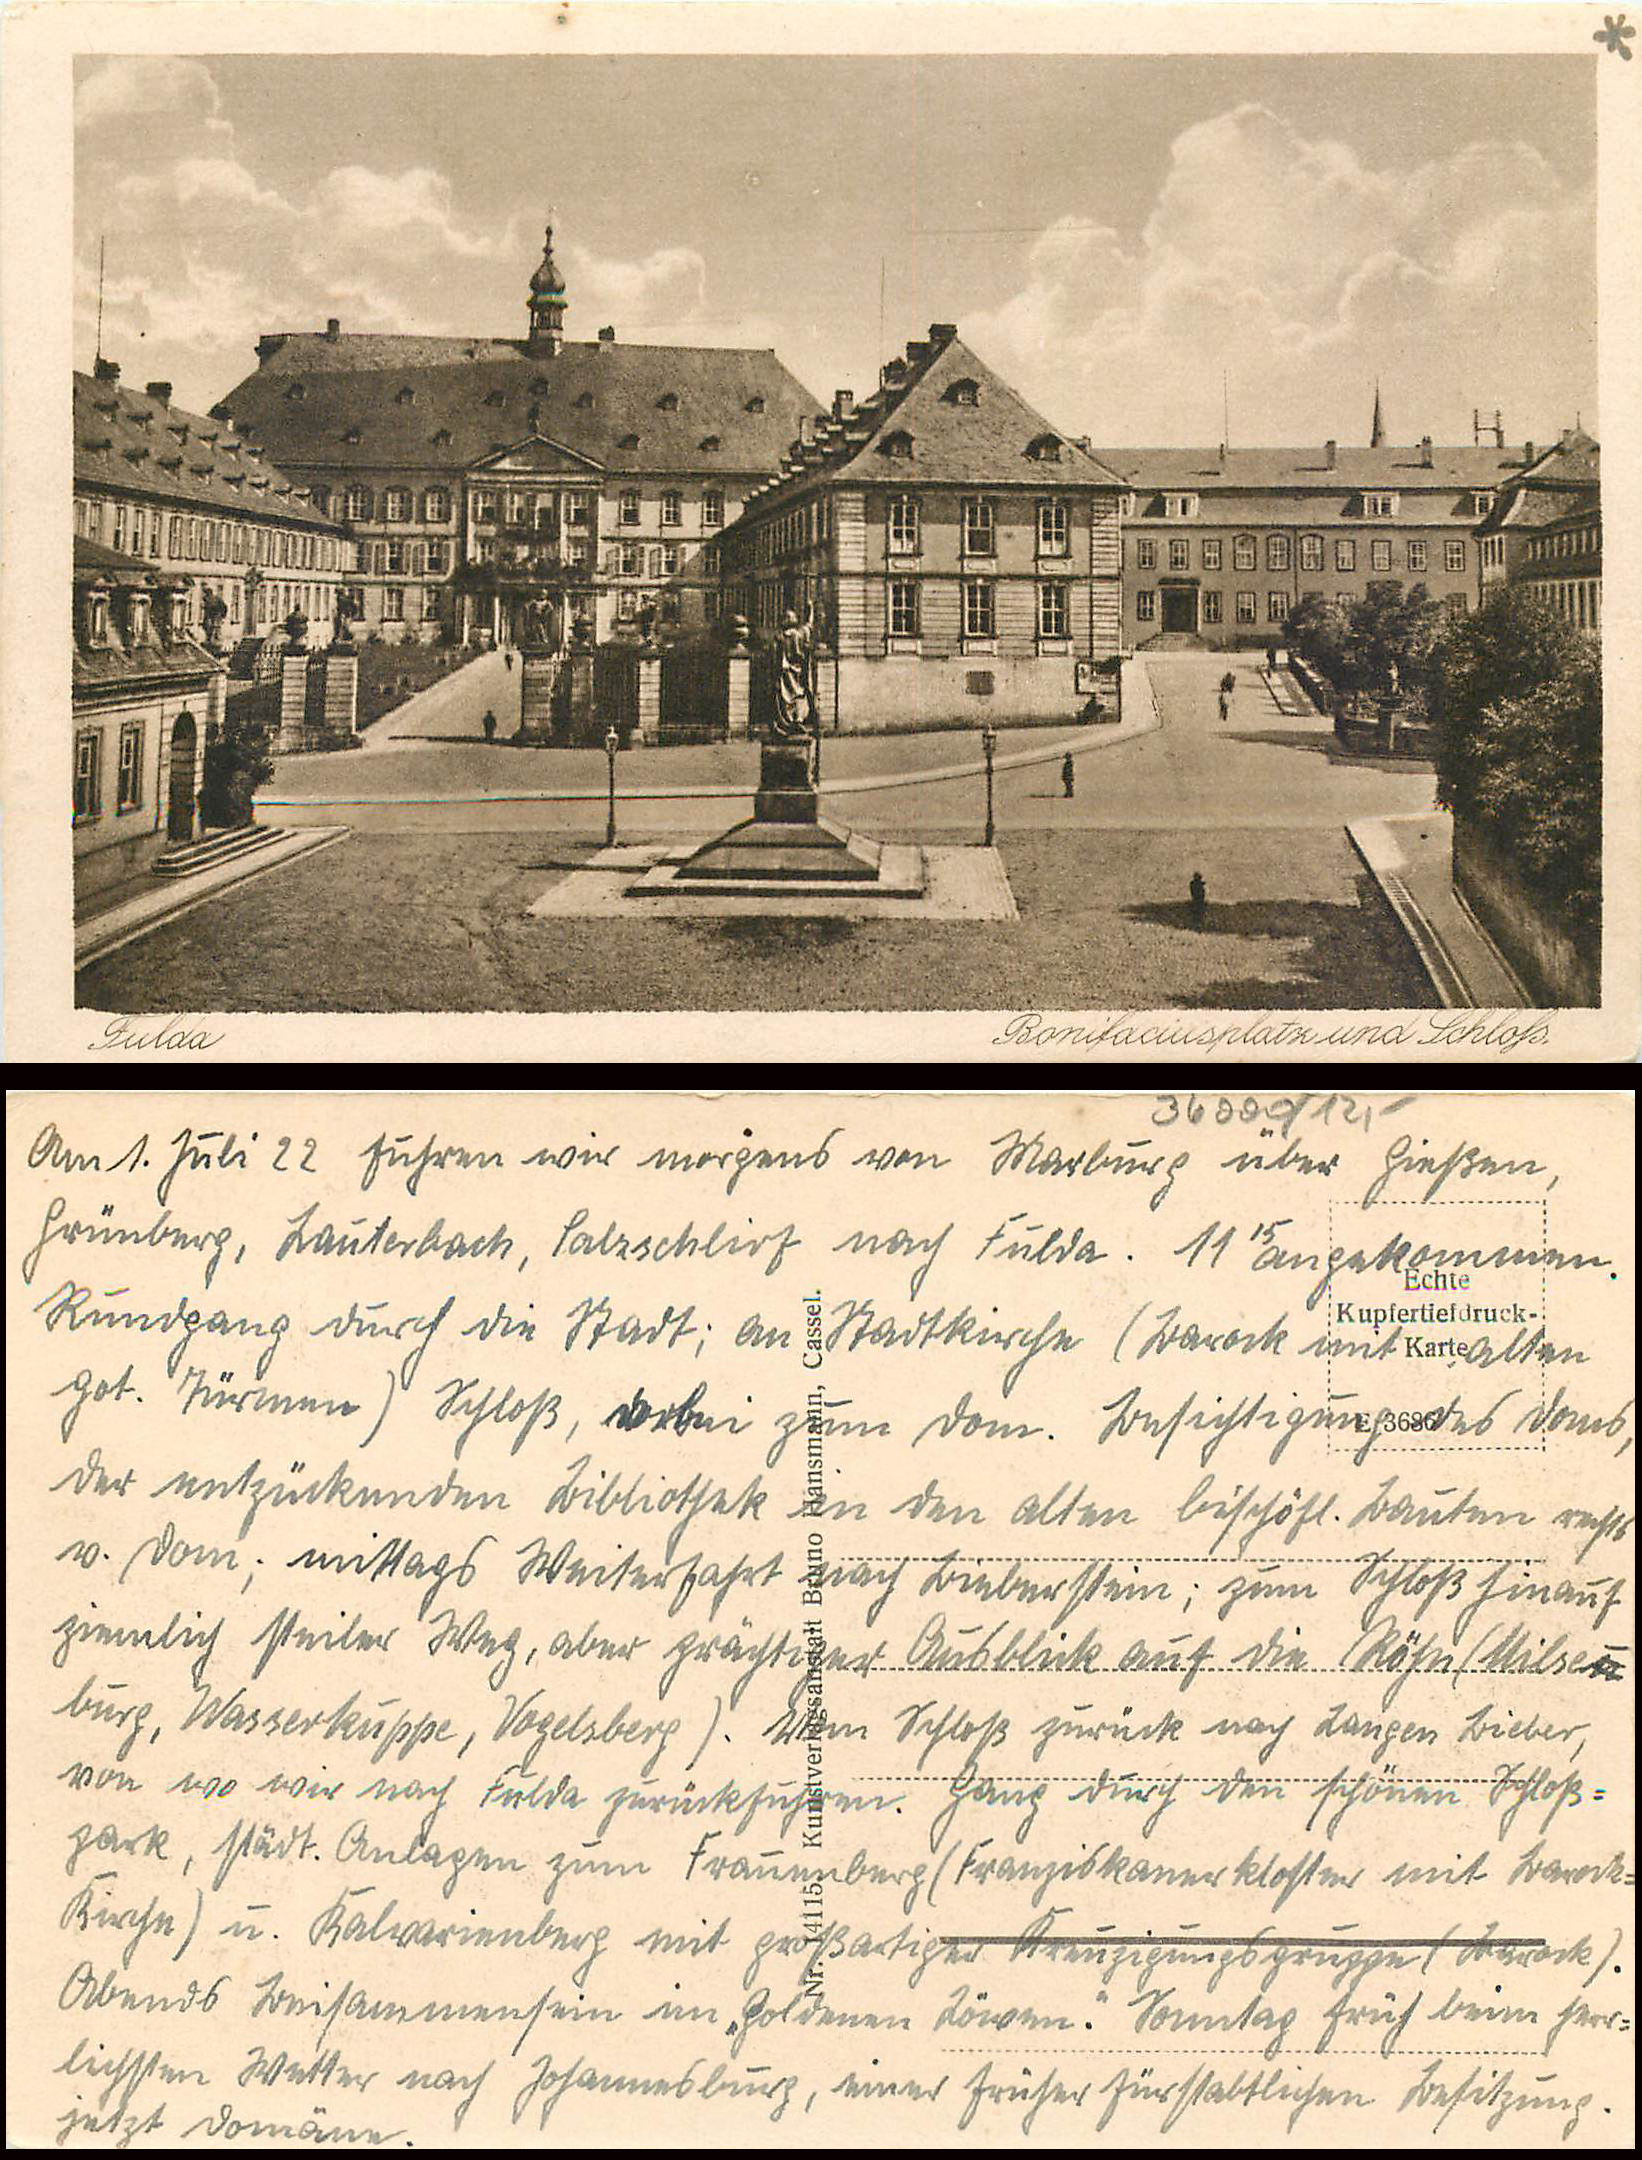 Fulda
Bonifaciusplatz und Schloß.
36000/12,-
Am 1. Juli 22 fuhren wir morgens von Marburg über Gießen,
Grünberg, Lauterbach, Salzschlirf nach Fulda. 11 15 angekommen.
Rundgang durch die Stadt; an Stadtkirche (Barock mit alten
got. Türmen) Schloß, vorbei zum Dom. Besichtigung des Doms,
der entzückenden Bibliothek in den alten bischöfl. Bauten rechts
v. Dom; mittags Weiterfahrt nach Bieberstein; zum Schloß hinauf
ziemlich steiler Weg, aber prächtiger Ausblick auf die Röhn (Milsen
burg, Wasserkuppe, Vogelsberg). Vom Schloß zurück nach Langen Bieber,
von wo wir nach Fulda zurückfuhren. Gang durch den schönen Schloß=
park, städt. Anlagen zum Frauenberg (Franziskanerkloster mit Barock=
Kirche) u. Kalvarienberg mit großartiger Kreuzigungsgruppe (Barock).
Abends Beisammensein im „Goldenen Löwen." Sonntag früh beim herr=
lichsten Wetter nach Johannesburg, einer früher fürstabtlichen Besitzung.
jetzt Domäne.
Echte
Kupfertiefdruck-
Karte
E 3686
Nr. 14115. Kunstverlagsanstalt Bruno Hansmann, Cassel.